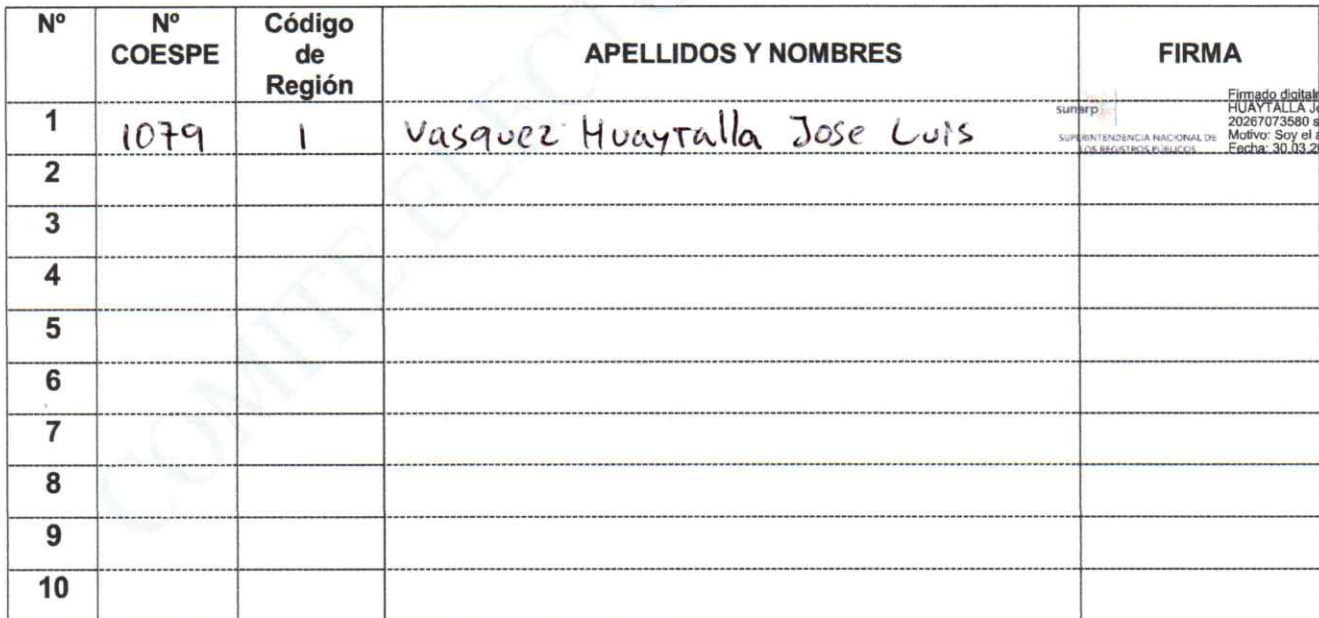 Nº Nº COESPE Código de Región APELLIDOS Y NOMBRES FIRMA
1 1079 1 Vasquez Huaytalla Jose Luis
sunarp
SUPERINTENDENCIA NACIONAL DE
LOS REGISTROS PÚBLICOS
Firmado digital
HUAYTALLA J
20267073580 s
Motivo: Soy el a
Fecha: 30.03.2
2
3
4
5
6
7
8
9
10
COMITE ELECT